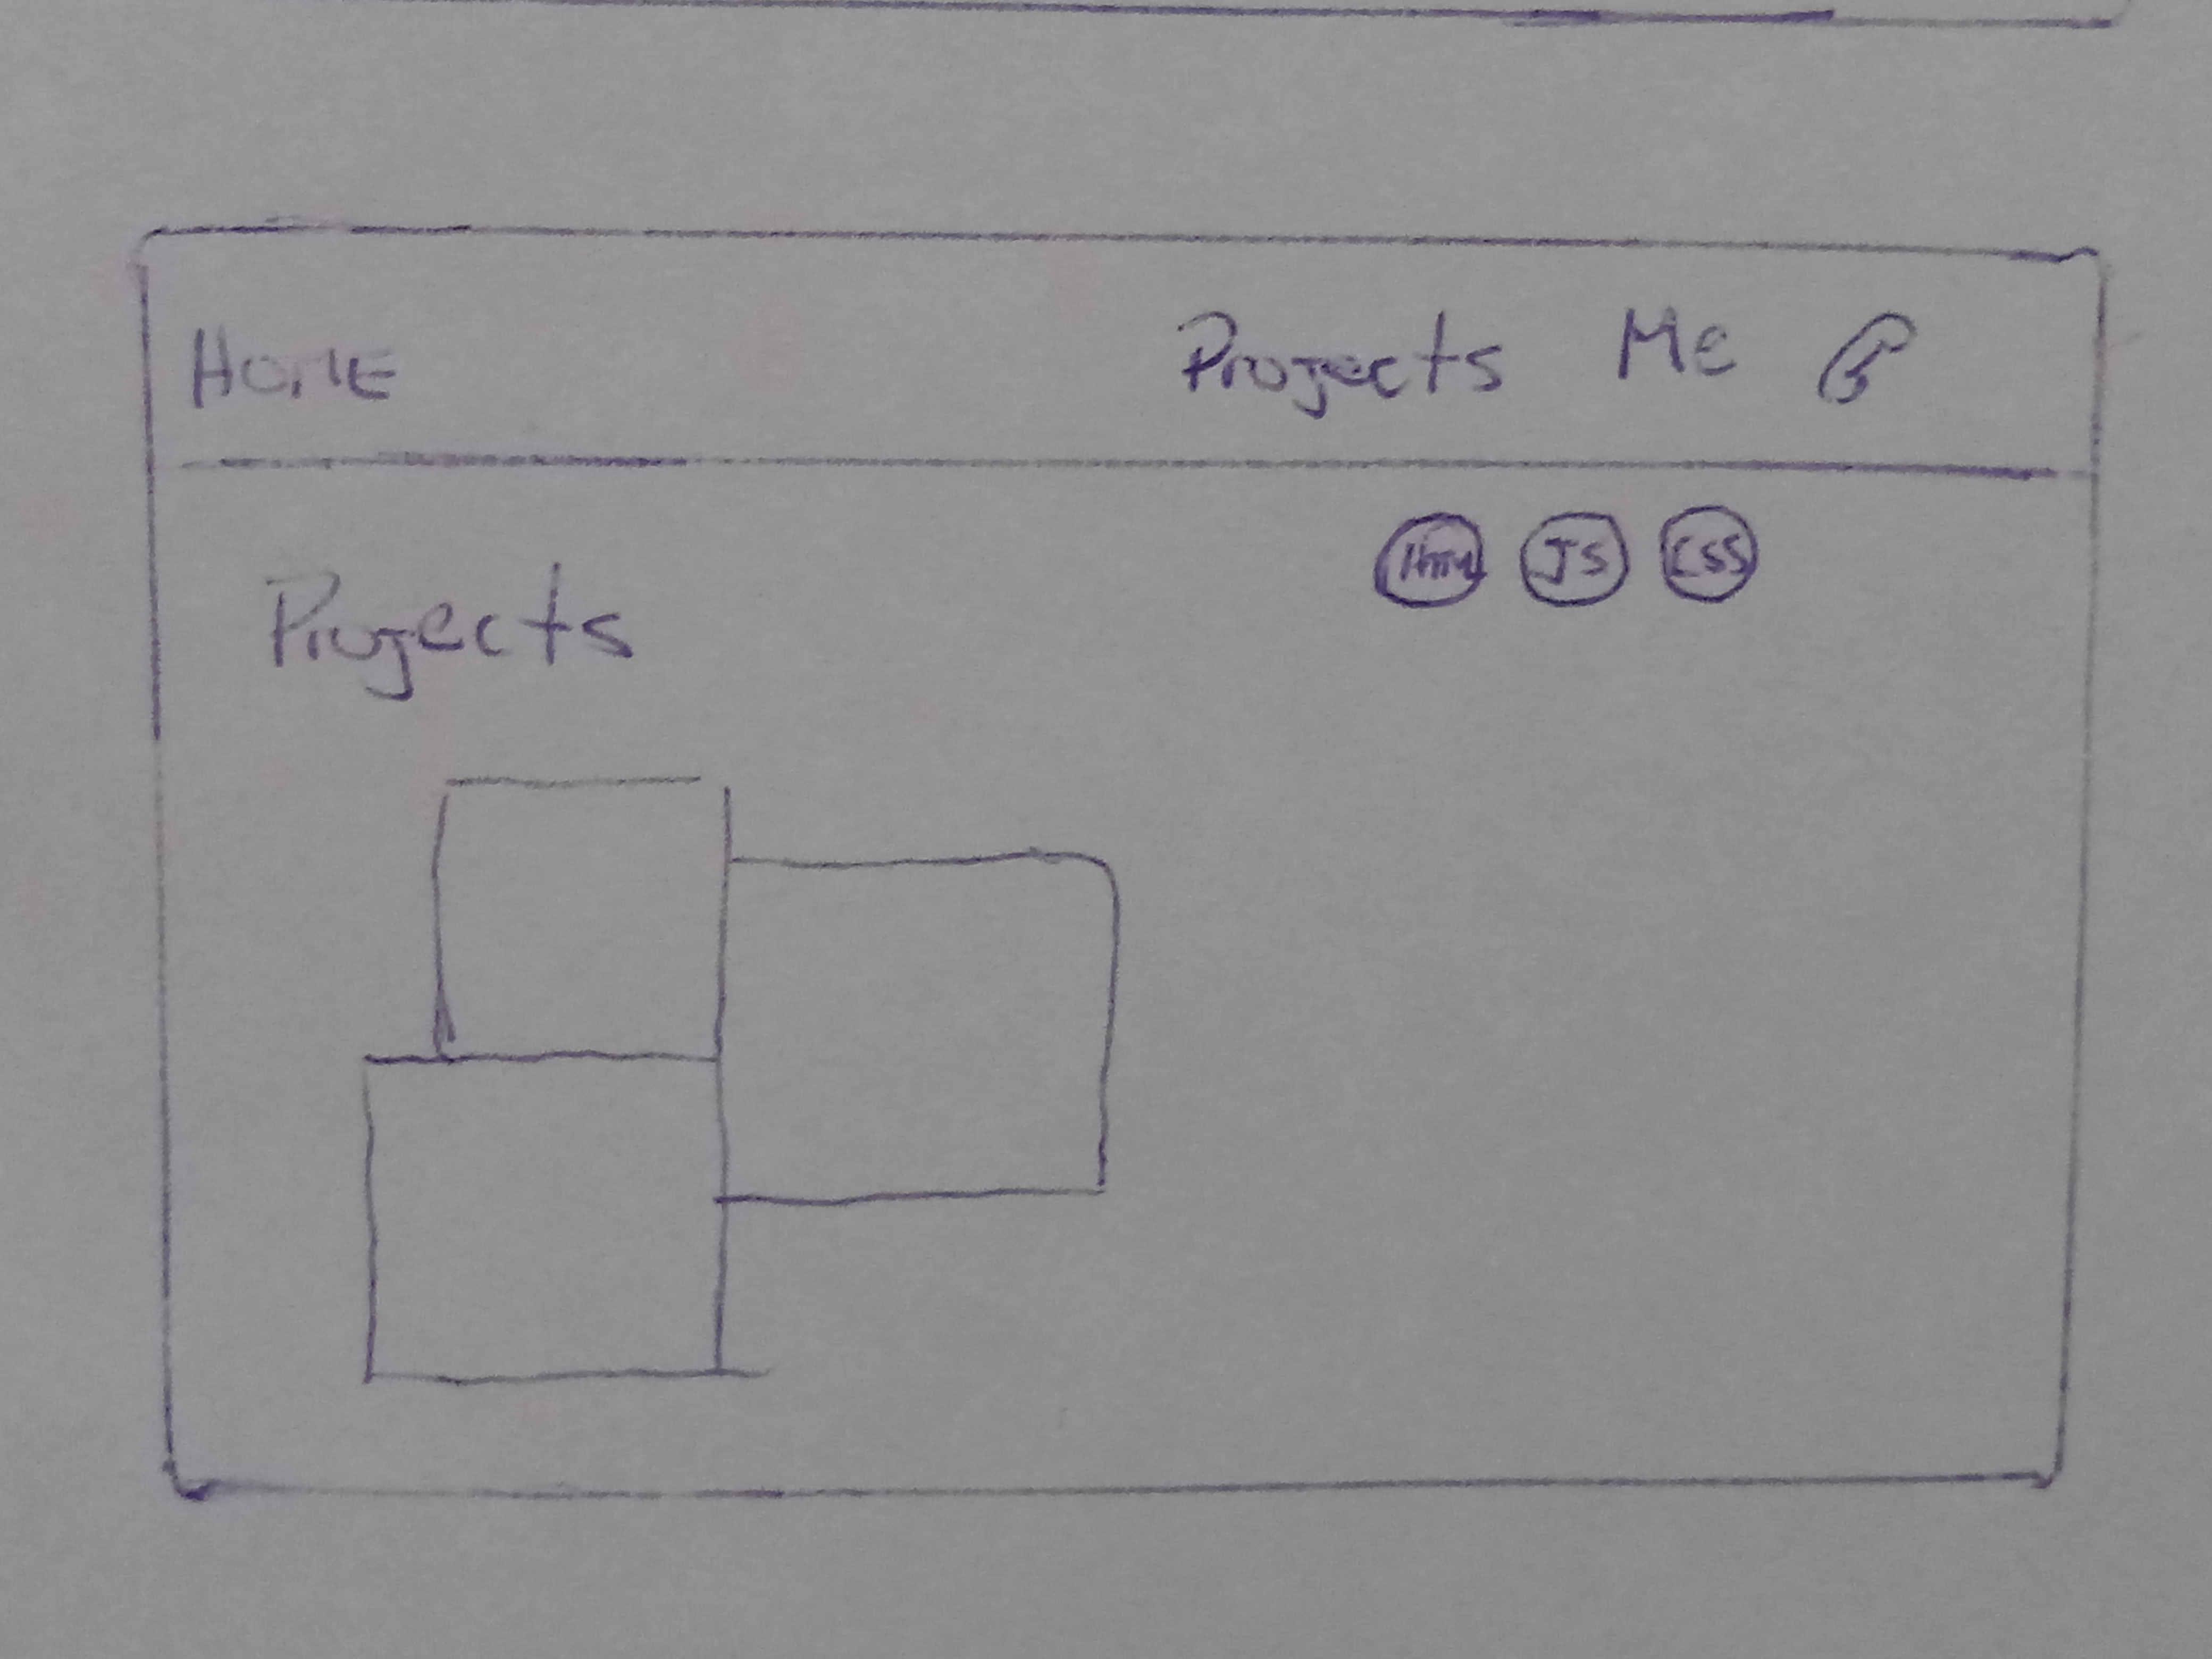 HOME Projects Me
Html JS CSS
Projects